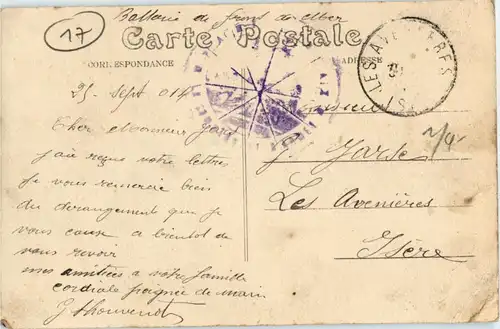 17
Batterie de
Carte Postale
CORRESPONDANCE
ADRESSE
LES AVENIERES
25 Sept 014
Monsieur
Cher Monsieur
J'ai reçus votre lettres
Je vous remercie bien
du derangement que je
vous cause a bientot de
vous revoir
mes amitiées a votre famille
cordiale poignée de main
J Thouvenot
J. Jarse
Les Avenières
Isère